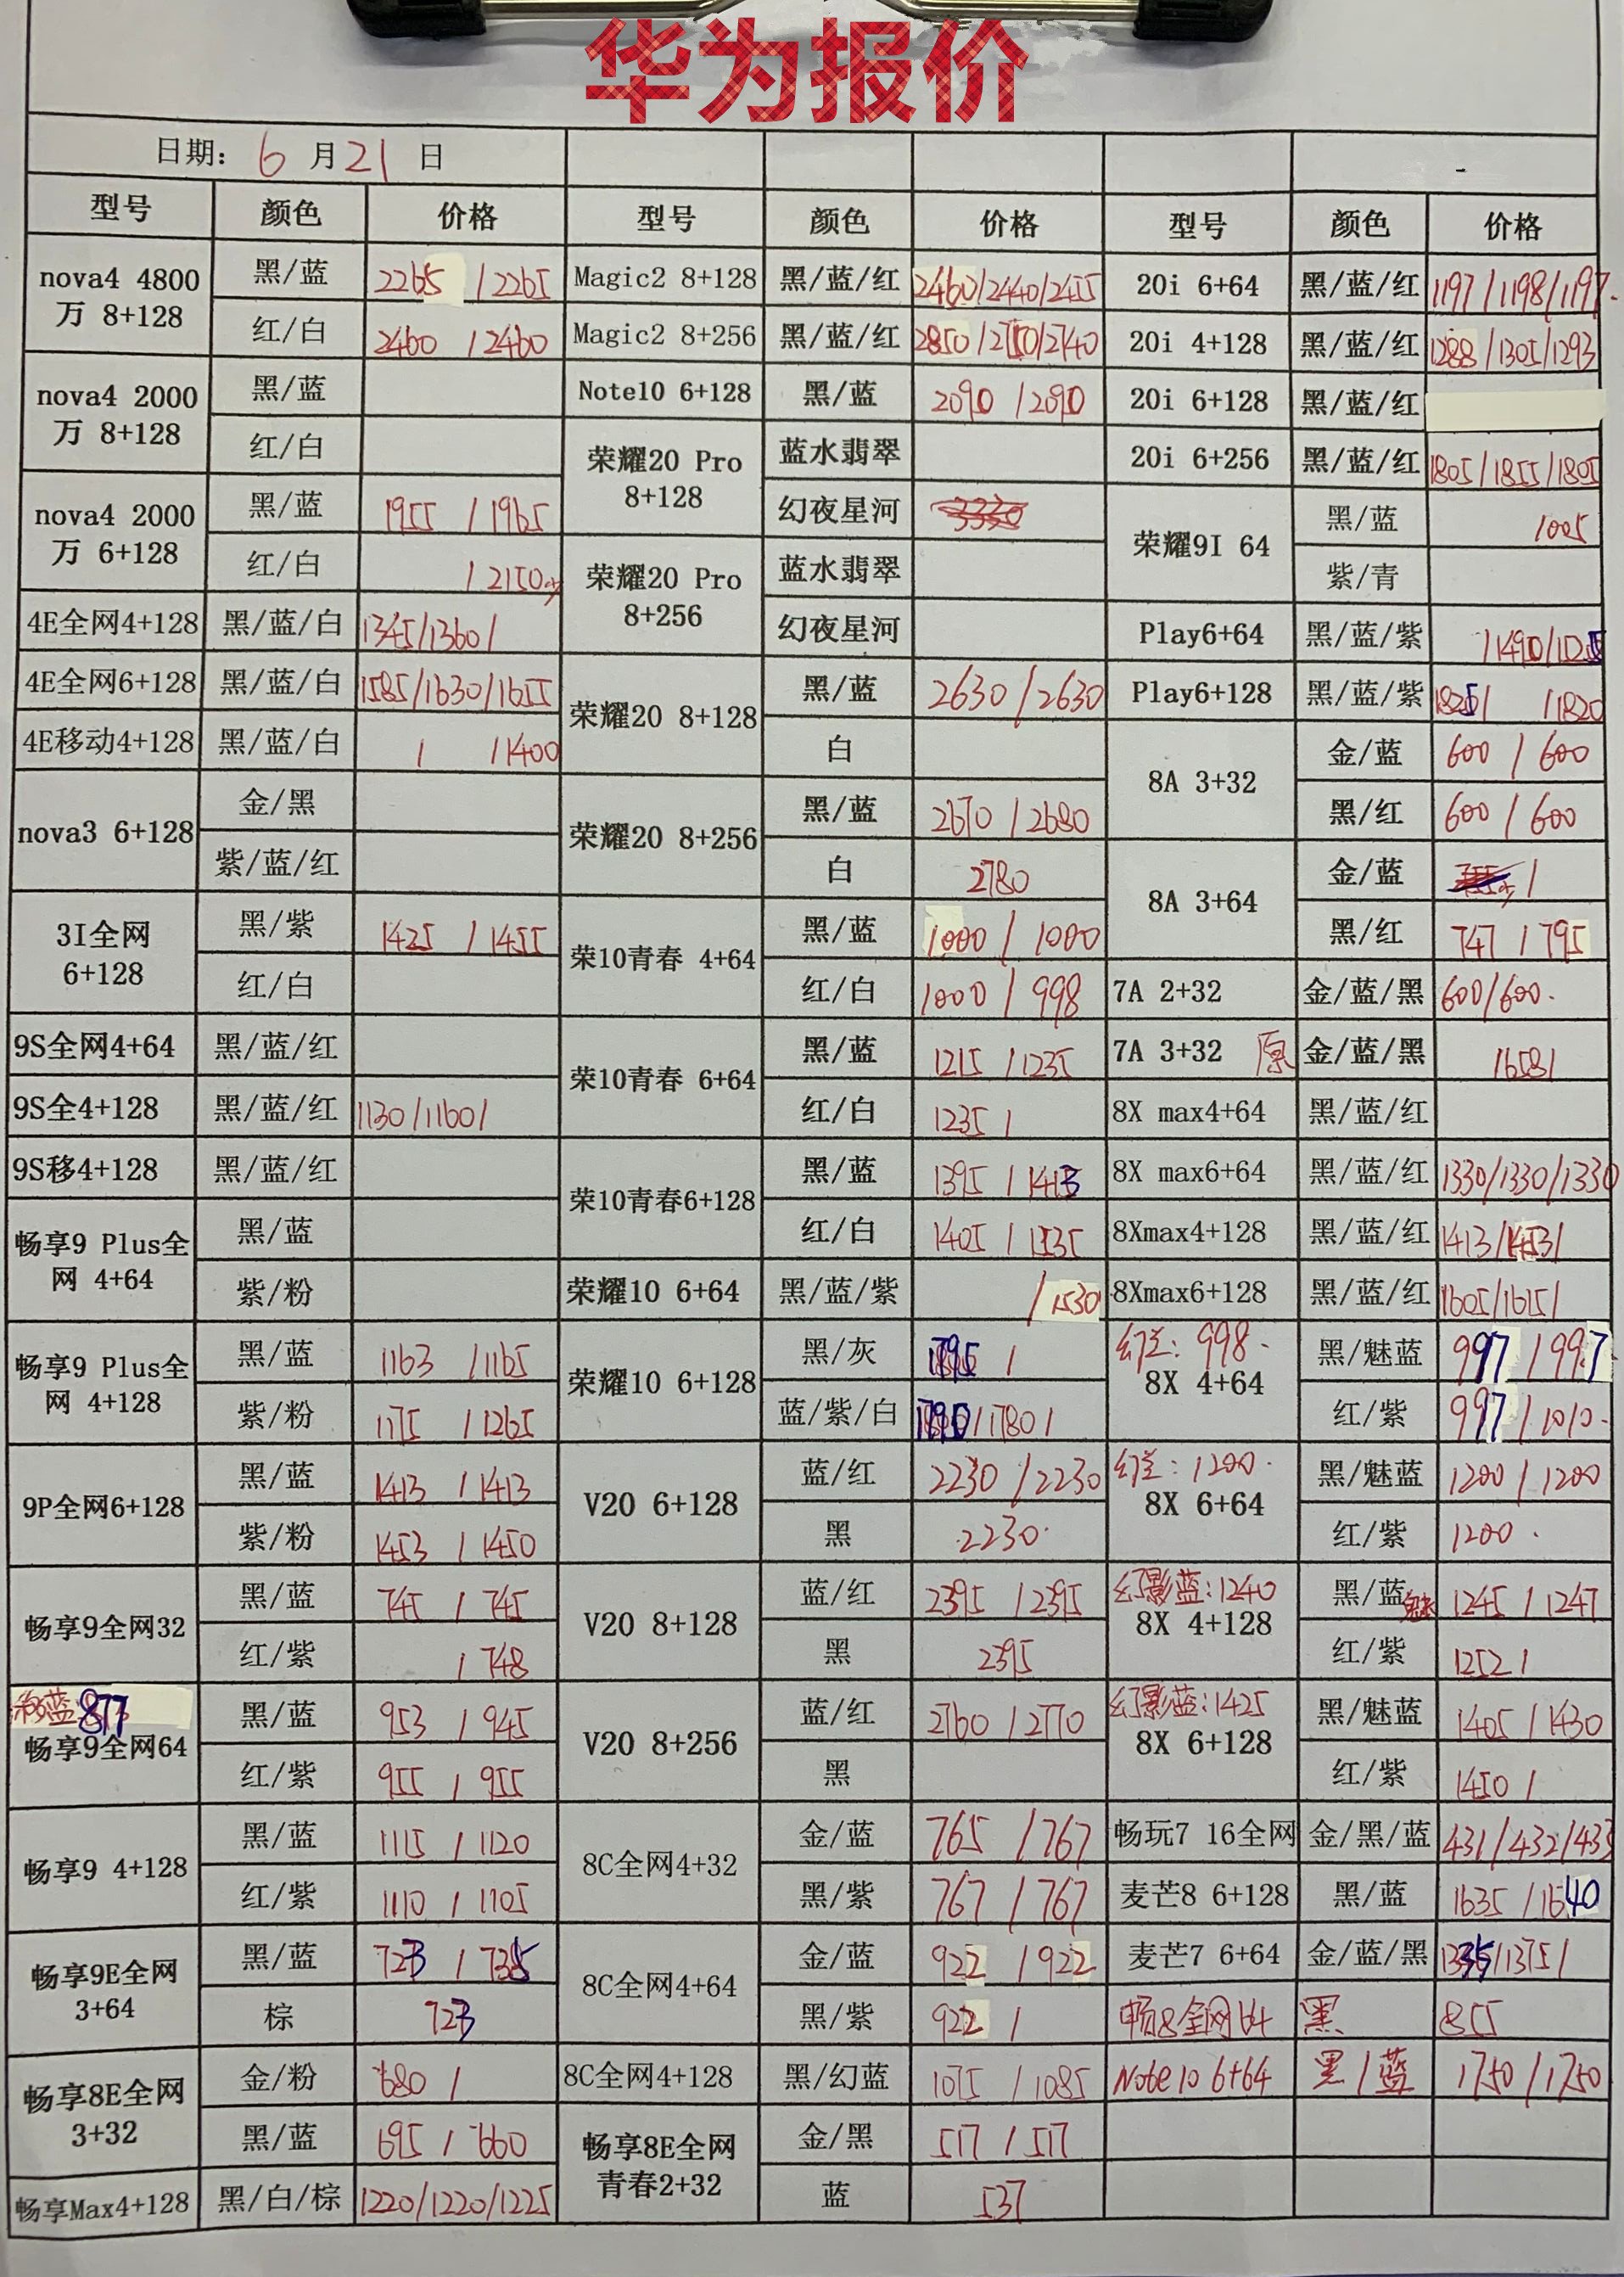 华为报价
日期: 6 月 21 日
型号 颜色 价格 型号 颜色 价格 型号 颜色 价格
nova4 4800万 8+128 黑/蓝 2265 /2265 Magic2 8+128 黑/蓝/红 2460/2440/2455 20i 6+64 黑/蓝/红 1197/1198/1197.
红/白 2460 /2460 Magic2 8+256 黑/蓝/红 2850/ /2740 20i 4+128 黑/蓝/红 1288/1305/1293
nova4 2000万 8+128 黑/蓝 Note10 6+128 黑/蓝 2090 /2090 20i 6+128 黑/蓝/红
红/白 荣耀20 Pro 8+128 蓝水翡翠 20i 6+256 黑/蓝/红 1805/1855/1805
nova4 2000万 6+128 黑/蓝 1955 /1965 幻夜星河 荣耀9I 64 黑/蓝 1005
红/白 /2150少 荣耀20 Pro 8+256 蓝水翡翠 紫/青
4E全网4+128 黑/蓝/白 1345/1360/ 幻夜星河 Play6+64 黑/蓝/紫 /1490/
4E全网6+128 黑/蓝/白 1585/1630/1655 荣耀20 8+128 黑/蓝 2630/2630 Play6+128 黑/蓝/紫 1825/ /1820
4E移动4+128 黑/蓝/白 / /1400 白 8A 3+32 金/蓝 600 / 600
nova3 6+128 金/黑 荣耀20 8+256 黑/蓝 2670 /2680 黑/红 600 / 600
紫/蓝/红 白 2780 8A 3+64 金/蓝 /
3I全网 6+128 黑/紫 1425 /1455 荣10青春 4+64 黑/蓝 1000 / 1000 黑/红 747 /795
红/白 红/白 1000 / 998 7A 2+32 金/蓝/黑 600/600.
9S全网4+64 黑/蓝/红 荣10青春 6+64 黑/蓝 1215 /1235 7A 3+32 原 金/蓝/黑 /658/
9S全4+128 黑/蓝/红 1130/1160/ 红/白 1235 / 8X max4+64 黑/蓝/红
9S移4+128 黑/蓝/红 荣10青春6+128 黑/蓝 1395 /1413 8X max6+64 黑/蓝/红 1330/1330/1330
畅享9 Plus全网 4+64 黑/蓝 红/白 1405 / 8Xmax4+128 黑/蓝/红 1413/1453/
紫/粉 荣耀10 6+64 黑/蓝/紫 /1530 8Xmax6+128 黑/蓝/红 1605/1615/
畅享9 Plus全网 4+128 黑/蓝 1163 /1165 荣耀10 6+128 黑/灰 1795 / 幻兰: 998. 8X 4+64 黑/魅蓝 997 /997
紫/粉 1175 /1265 蓝/紫/白 1790/1780/ 红/紫 997 /1010.
9P全网6+128 黑/蓝 1413 /1413 V20 6+128 蓝/红 2230 /2230 幻兰: 1200. 8X 6+64 黑/魅蓝 1200 /1200
紫/粉 1453 /1450 黑 2230. 红/紫 1200.
畅享9全网32 黑/蓝 745 / 745 V20 8+128 蓝/红 2395 /2395 幻影蓝:1240 8X 4+128 黑/蓝魅 1245 /1247
红/紫 / 748 黑 2395 红/紫 1252 /
移蓝:877 畅享9全网64 黑/蓝 953 / 945 V20 8+256 蓝/红 2760 /2770 幻影蓝:1425 8X 6+128 黑/魅蓝 1405 /1430
红/紫 955 / 955 黑 红/紫 1450 /
畅享9 4+128 黑/蓝 1115 /1120 8C全网4+32 金/蓝 765 /767 畅玩7 16全网 金/黑/蓝 431/432/433
红/紫 1110 / 1105 黑/紫 767 /767 麦芒8 6+128 黑/蓝 1635 /1640
畅享9E全网 3+64 黑/蓝 723 / 735 8C全网4+64 金/蓝 922 /922 麦芒7 6+64 金/蓝/黑 1335/1375/
棕 723 黑/紫 922 / 畅8全网64 黑 855
畅享8E全网 3+32 金/粉 680 / 8C全网4+128 黑/幻蓝 1075 /1085 Note10 6+64 黑/蓝 1750/1750
黑/蓝 695 / 660 畅享8E全网青春2+32 金/黑 517 /517
畅享Max4+128 黑/白/棕 1220/1220/1225 蓝 537